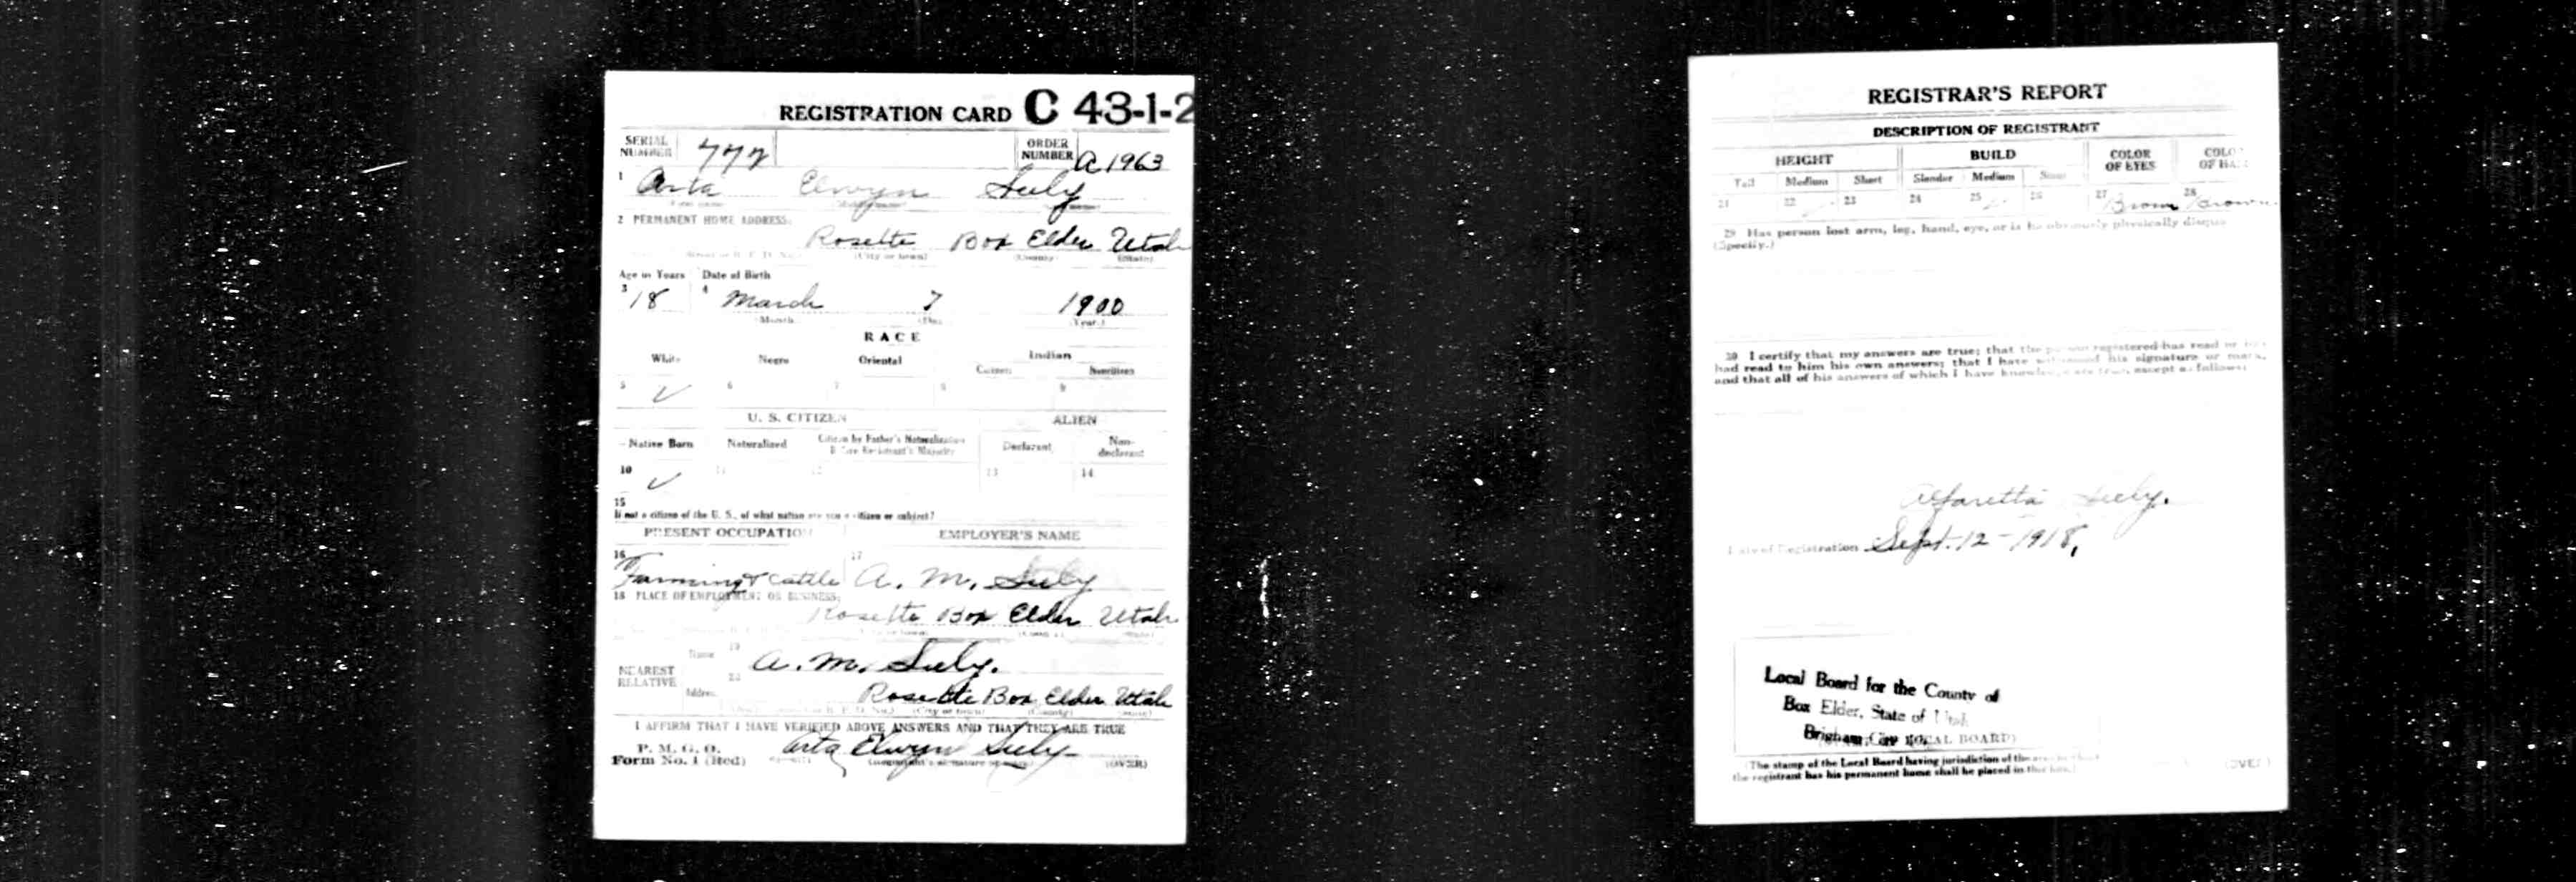 REGISTRATION CARD C 43-1-2
SERIAL NUMBER 772 ORDER NUMBER A 1963
1 Arta Elwyn Seely
2 PERMANENT HOME ADDRESS:
Rosette Box Elder Utah
(City or town) (County) (State)
Age in Years Date of Birth
3 18 4 March 7 1900
Month Day Year
RACE
White Negro Oriental Indian
Citizen Noncitizen
5 ✓ 6 7 8 9
U. S. CITIZEN ALIEN
Native Born Naturalized Citizen by Father's Naturalization Before Registrant's Majority Declarant Non-declarant
10 ✓ 11 12 13 14
15
If not a citizen of the U. S., of what nation are you a citizen or subject?
PRESENT OCCUPATION EMPLOYER'S NAME
16 Farming & Cattle 17 A. M. Seely
18 PLACE OF EMPLOYMENT OR BUSINESS:
Rosette Box Elder Utah
NEAREST RELATIVE
Name 19 A. M. Seely.
Address 20 Rosette Box Elder Utah
(City or town) (County) (State)
I AFFIRM THAT I HAVE VERIFIED ABOVE ANSWERS AND THAT THEY ARE TRUE
P. M. G. O.
Form No. 1 (Red) Arta Elwyn Seely (OVER)
REGISTRAR'S REPORT
DESCRIPTION OF REGISTRANT
HEIGHT BUILD COLOR OF EYES COLOR OF HAIR
Tall Medium Short Slender Medium Stout
21 22 ✓ 23 24 25 ✓ 26 27 Brown 28 Brown
29 Has person lost arm, leg, hand, eye, or is he obviously physically disqua
(Specify.)
30 I certify that my answers are true; that the person registered has read or has
had read to him his own answers; that I have witnessed his signature or mark,
and that all of his answers of which I have knowledge are true, except as follows:
Alfaretta Seely.
Date of Registration Sept. 12 - 1918,
Local Board for the County of
Box Elder, State of Utah
Brigham City
(LOCAL BOARD)
(The stamp of the Local Board having jurisdiction of the area in which
the registrant has his permanent home shall be placed in this box.)
(OVER)